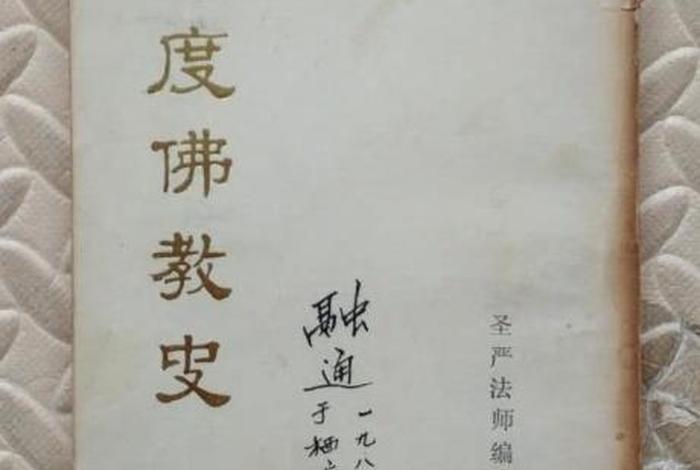 度佛教史
圣严法师编
融通
一九八
于栖